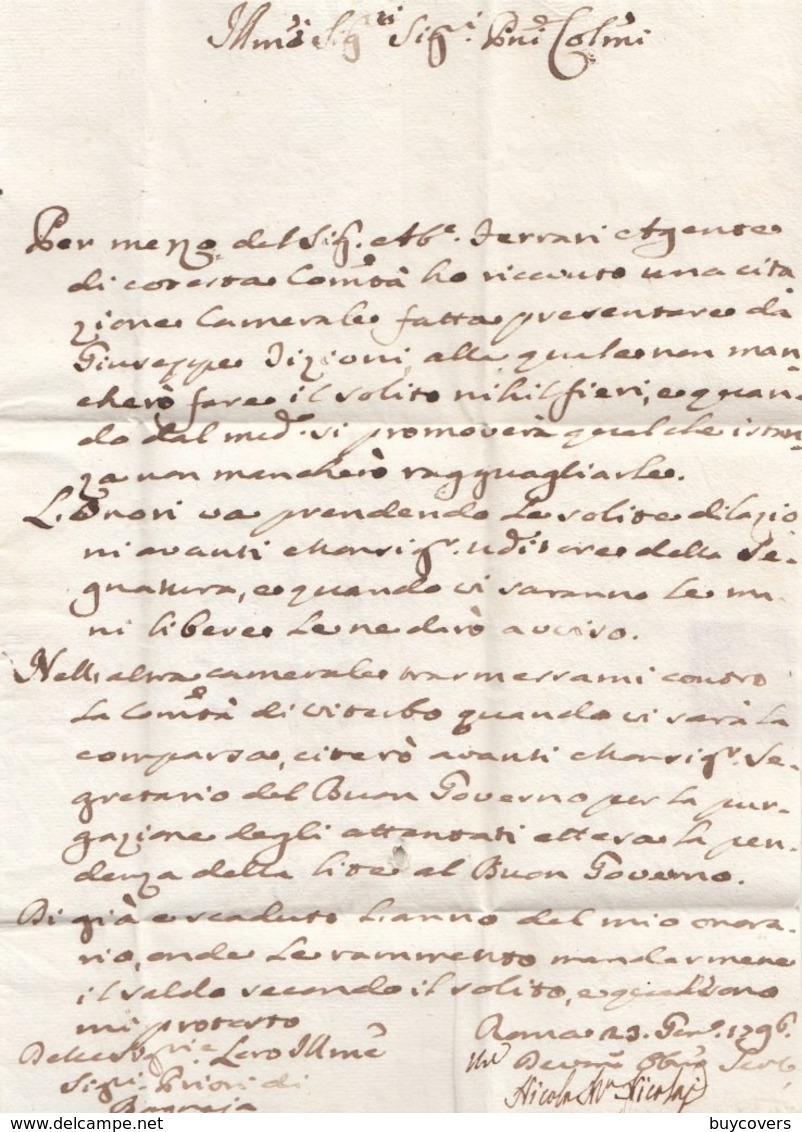 Illmi Sigri Sigri Pni Colmi
Per mezzo del Sigr. Abe. Ferrari Agente
di cotesta Comtà ho ricevuto una cita
zione Camerale fatta presentare da
Giuseppe Tizioni, alla quale non man
cherò fare il solito nihil fieri, e quan-
do dal medo. si promoverà qualche istan-
za non mancherò ragguagliarle.
L'Onori va prendendo le solite dilazio
ni avanti Monsigr. Uditore della Se-
gnatura, e quando vi saranno le ma-
ni libere le ne darò avviso.
Nell'altra camerale trasmessami contro
la Comtà di Viterbo quando vi sarà la
comparsa, citerò avanti Monsigr. Se-
gretario del Buon Governo per la pur-
gazione degli attentati attesa la pen-
denza della lite al Buon Governo.
Di già è scaduto l'anno del mio onora-
rio, onde le rammento mandarmene
il saldo secondo il solito, e qui sono
mi protesto
Roma 23. Genn. 1796.
Delle Sigrie Loro Illme
Devmo Obmo Serv
Sigri Priori di
Nicola Ma Nicolai
Bagnaja
www.delcampe.net
buycovers